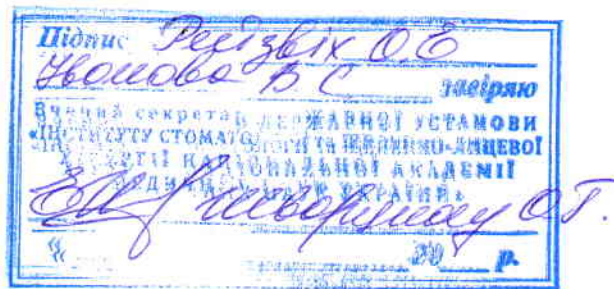 Підпис Рейзвіх О.Е
В С засвіряю
Вчений секретар ДЕРЖАВНОЇ УСТАНОВИ
«ІНСТИТУТУ СТОМАТОЛОГІЇ ТА ЩЕЛЕПНО-ЛИЦЕВОЇ
ХІРУРГІЇ НАЦІОНАЛЬНОЇ АКАДЕМІЇ
МЕДИЧНИХ НАУК УКРАЇНИ»
О.Г.
« 20 р.